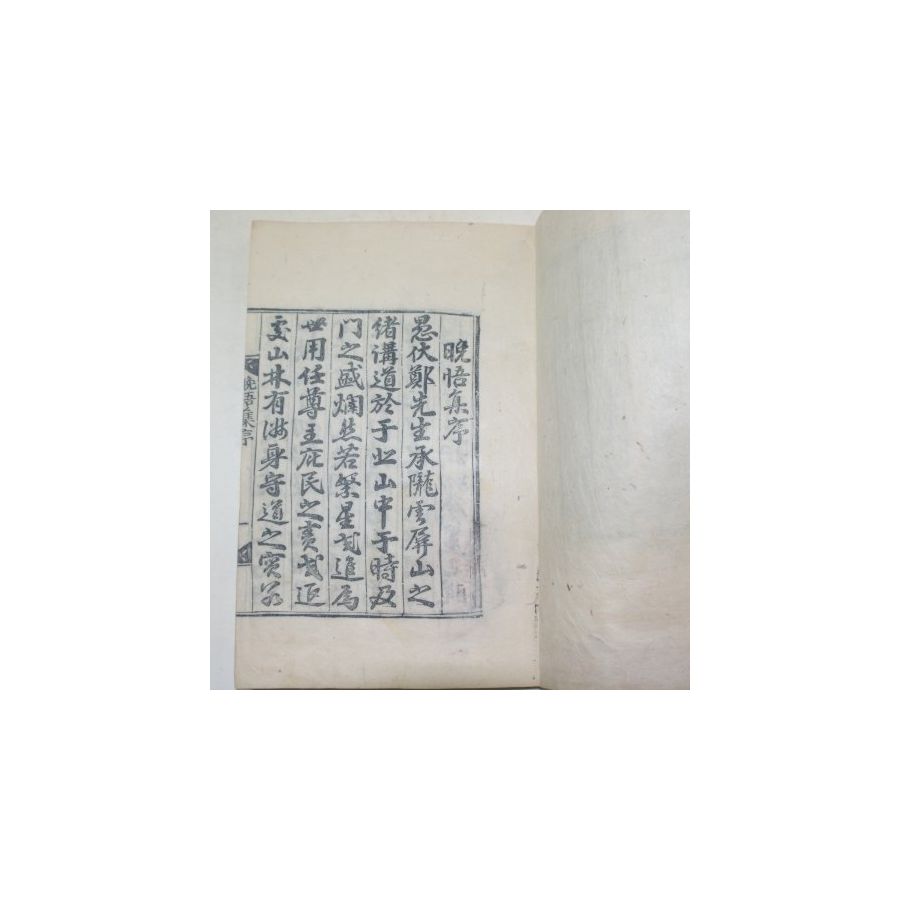 晩悟集序
愚伏鄭先生承隴雲屏山之
緒講道於于北山中于時及
門之盛爛然若繁星或進爲
世用任尊主庇民之責或退
處山林有淑身守道之實若
晩悟集序